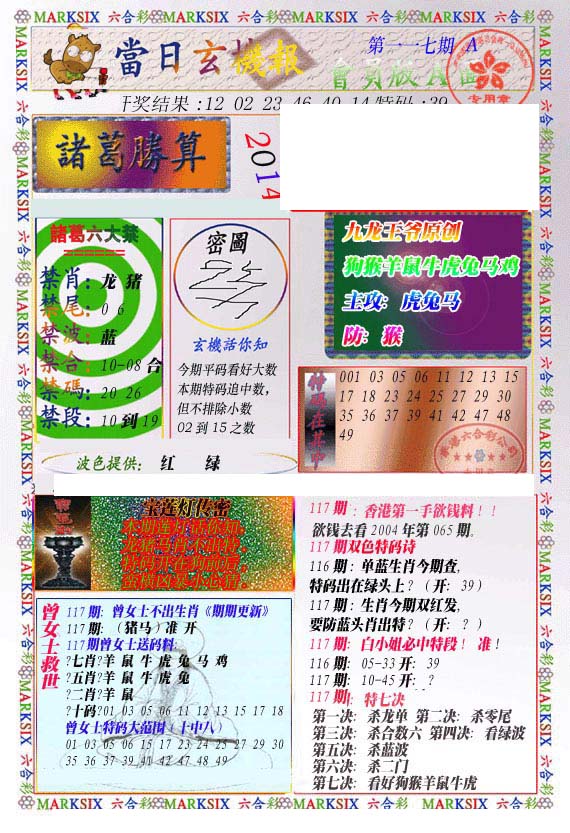 MARKSIX 六合彩 MARKSIX 六合彩 MARKSIX 六合彩 MARKSIX 六合彩
當日玄機報
第一一七期 A
會員版A面
专用章
开奖结果:12 02 23 46 40 14 特码:39
諸葛勝算
2014
諸葛六大禁
禁肖: 龙 猪
禁尾: 0 6
禁波: 蓝
禁合: 10-08 合
禁碼: 20 26
禁段: 10 到 19
密圖
玄機活你知
今期平码看好大数
本期特码追中数,
但不排除小数
02 到 15 之数
九龙王爷原创
狗猴羊鼠牛虎兔马鸡
主攻: 虎兔马
防: 猴
特码在其中
001 03 05 06 11 12 13 15
17 18 23 24 25 27 29 30
35 36 37 39 41 42 47 48
49
波色提供: 红 绿
宝莲灯传密
117 期:曾女士不出生肖《期期更新》
117 期: (猪马)准 开
117期曾女士送码料:
?七肖?羊 鼠 牛 虎 兔 马 鸡
?五肖?羊 鼠 牛 虎 兔
?二肖?羊 鼠
?十码?01 03 05 06 11 12 13 15 17 18
曾女士特码大范围(十中八)
01 03 05 06 15 17 23 24 25 27 29 30
35 36 37 39 41 42 47 48 49
曾女士救世
117 期:香港第一手欲钱料!!
欲钱去看 2004 年第 065 期。
117 期双色特码诗
116 期: 单蓝生肖今期查,
特码出在绿头上?(开: 39)
117 期: 生肖今期双红发,
要防蓝头肖出特?(开: ?)
117 期: 白小姐必中特段! 准!
116 期: 05-33 开: 39
117 期: 10-45 开: ?
117 期: 特七决
第一决: 杀龙单 第二决: 杀零尾
第三决: 杀合数六 第四决: 看绿波
第五决: 杀蓝波
第六决: 杀二门
第七决: 看好狗猴羊鼠牛虎
MARKSIX 六合彩 MARKSIX 六合彩 MARKSIX 六合彩 MARKSIX 六合彩